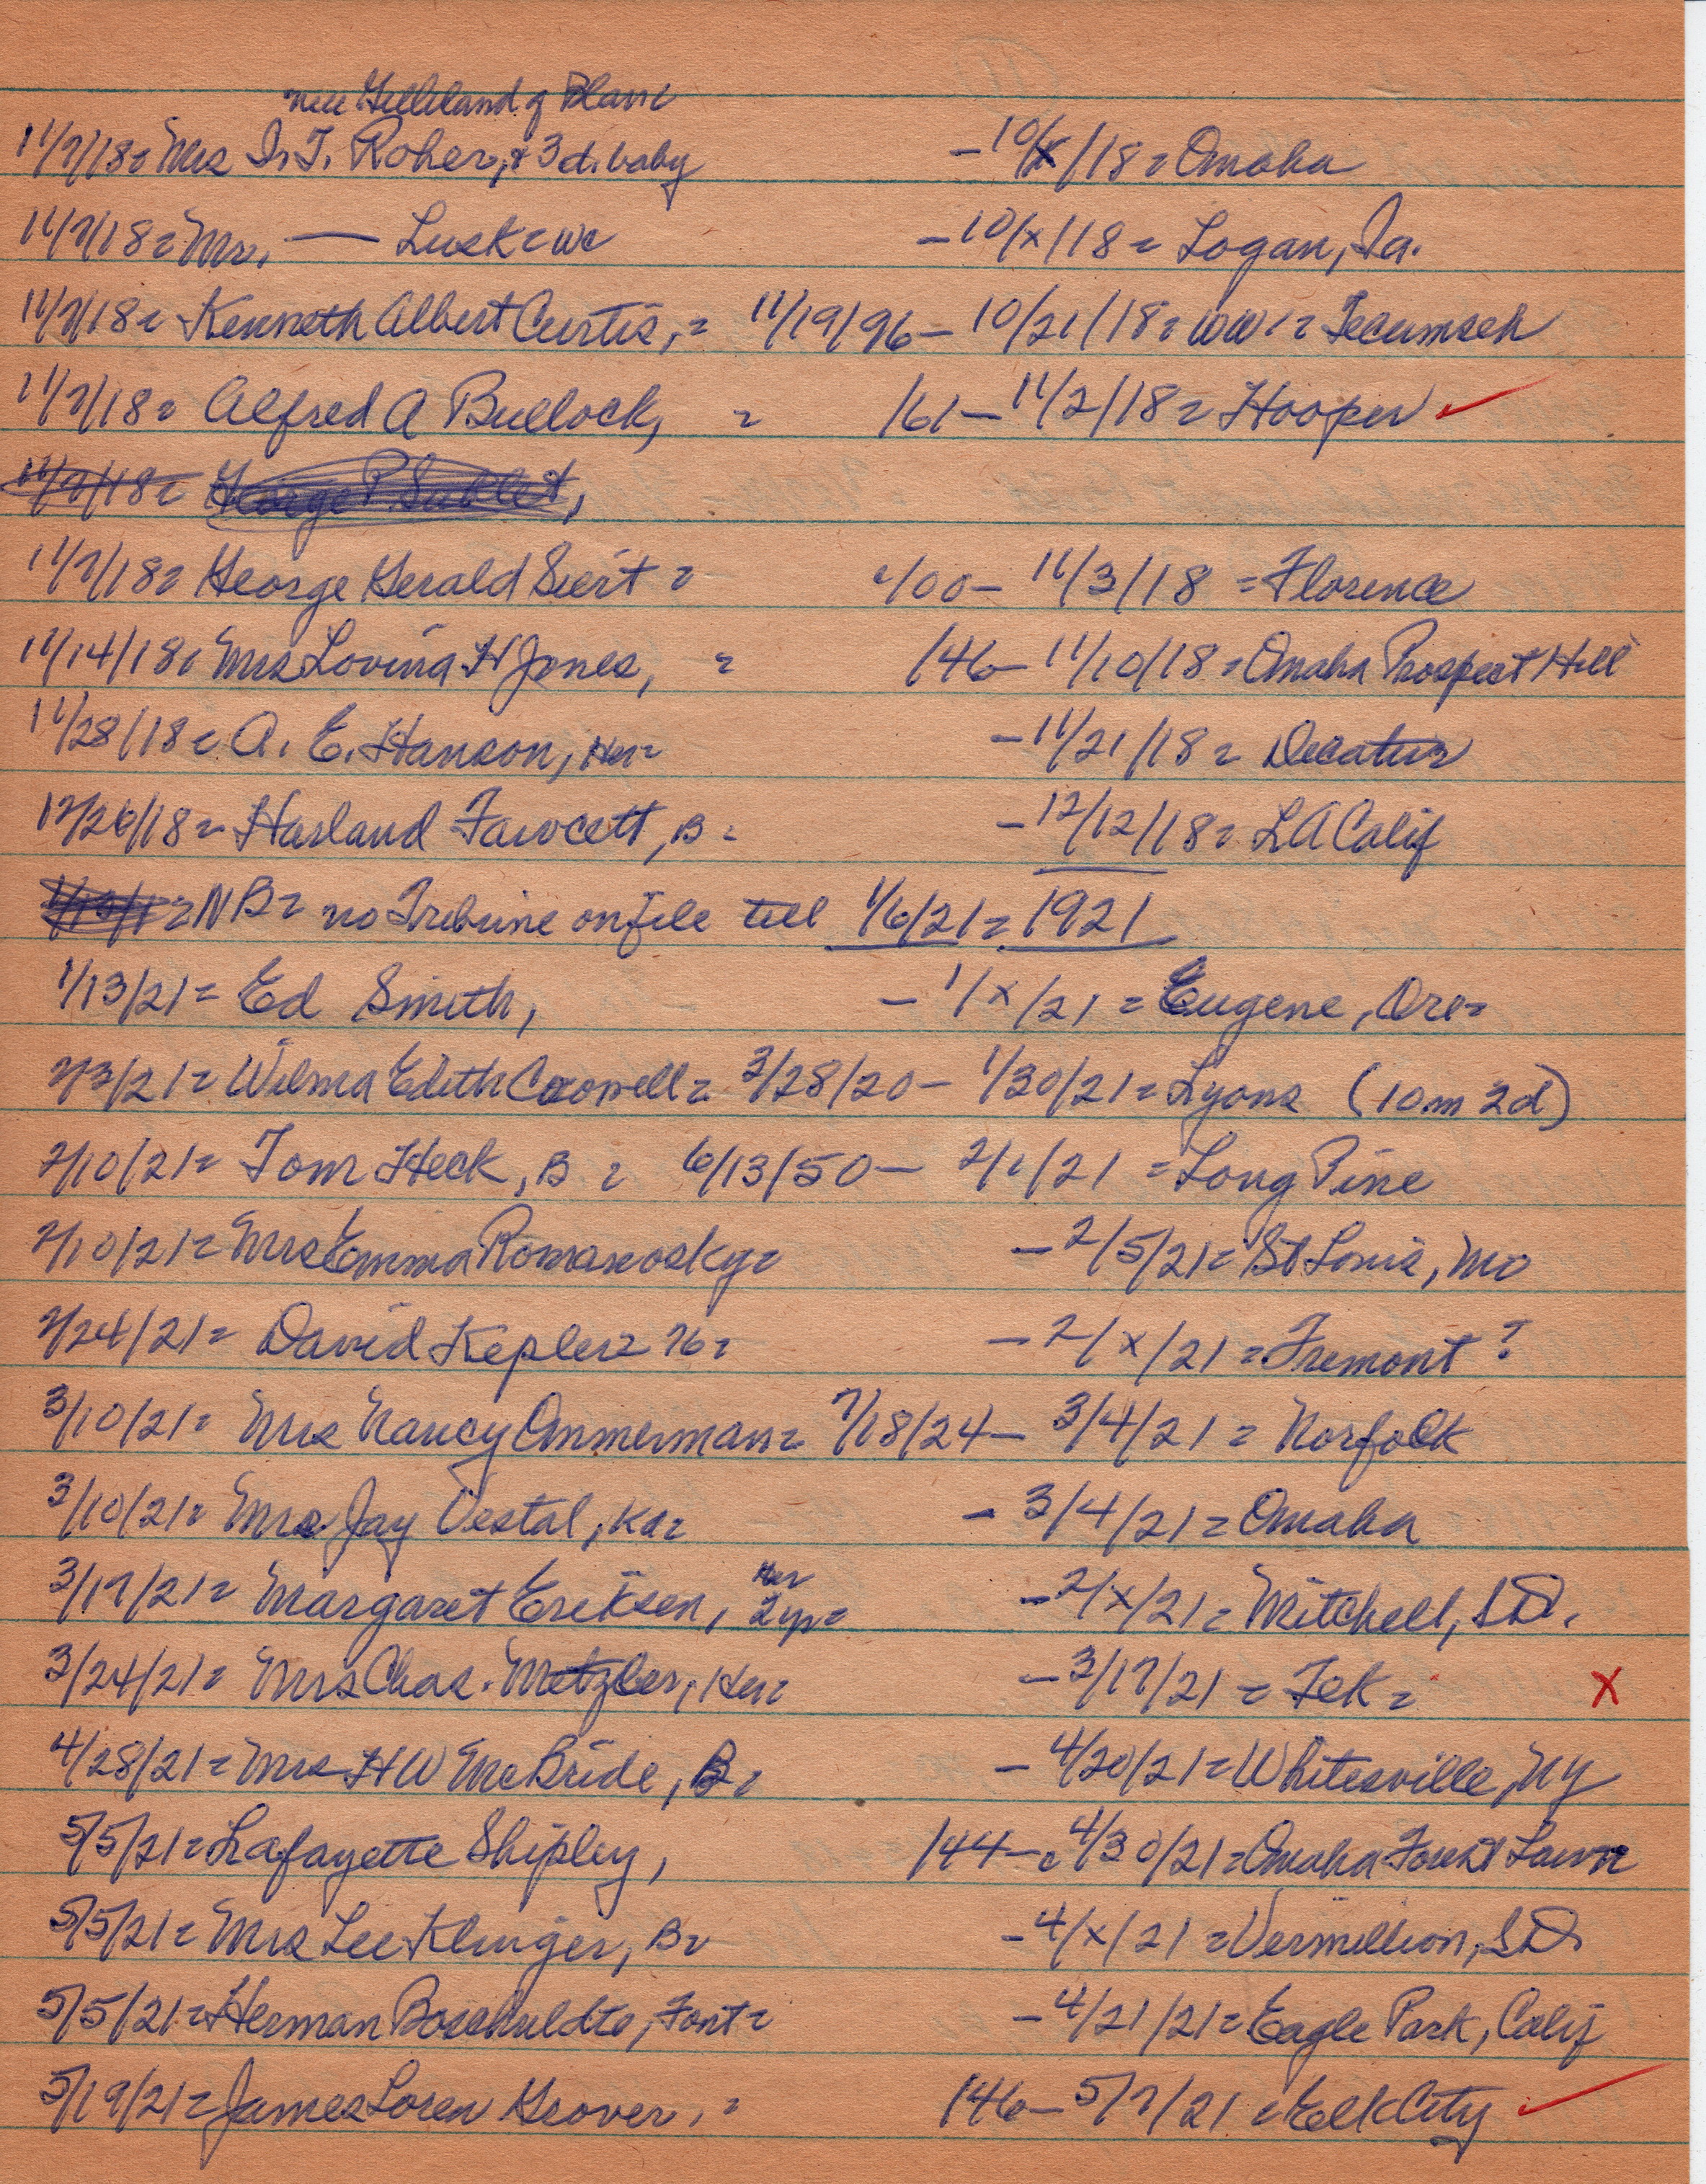 nee Gilleland of Blair
11/7/18= Mrs I. T. Roher, & 3d. baby -10/x/18= Omaha
11/7/18= Mr. — Lusk= WC -10/x/18= Logan, Ia.
11/7/18= Kenneth Albert Curtis, = 11/19/96- 10/21/18= WW1= Tecumseh
11/7/18= Alfred A Bullock, = /61- 11/2/18= Hooper ✓
11/7/18= George P Sublet,
11/7/18= George Gerald Siert = c/00- 11/3/18 = Florence
11/14/18= Mrs Lovina H Jones, = /46- 11/10/18= Omaha Prospect Hill
11/28/18= A. E. Hanson, Her= -11/21/18= Decatur
12/26/18= Harland Fawcett, B= -12/12/18= LA Calif
1/13/1 = NB= no Tribune on file till 1/6/21= 1921
1/13/21= Ed Smith, -1/x/21= Eugene, Ore=
2/3/21= Wilma Edith Crowell= 3/28/20- 1/30/21= Lyons (10m 2d)
2/10/21= Tom Heck, B = 6/13/50- 2/1/21 = Long Pine
2/10/21= Mrs Emma Romanosky= -2/5/21= St Louis, Mo
2/24/21= David Kepler= 76= -2/x/21= Fremont ?
3/10/21= Mrs Nancy Ammerman= 7/18/24- 3/4/21= Norfolk
3/10/21= Mrs. Jay Vestal, Ka= -3/4/21= Omaha
3/17/21= Margaret Eriksen, Her 2yr= -2/x/21= Mitchell, SD.
3/24/21= Mrs Chas. Metzler, Her= -3/17/21= Tek= X
4/28/21= Mrs HW McBride, B= -4/20/21= Whitesville, NY
5/5/21= Lafayette Shipley, /44- c4/30/21= Omaha Forest Lawn
5/5/21= Mrs Lee Klinger, B= -4/x/21= Vermillion, SD
5/5/21= Herman Boschuldte, Font= -4/21/21= Eagle Park, Calif
5/19/21= James Loren Grover, = /46- 5/7/21= Elk City ✓